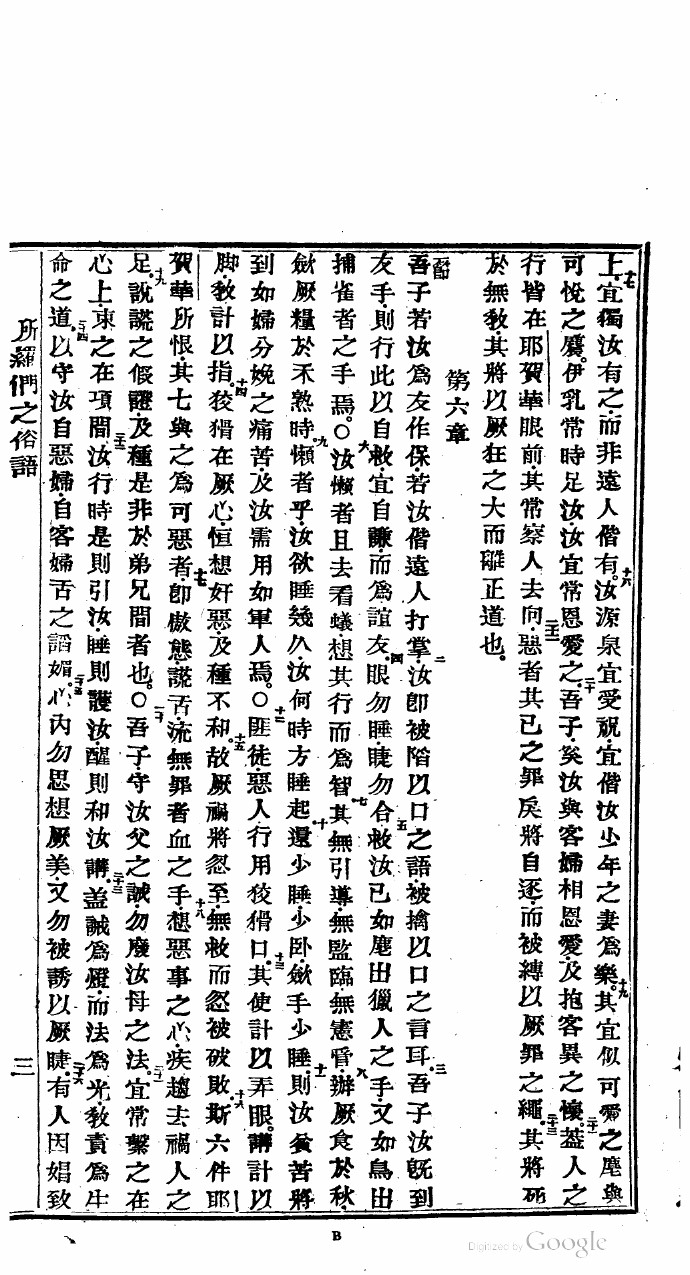 上宜獨汝有之而非遠人偕有十六汝源泉宜受祝宜偕汝少年之妻爲樂十九其宜似可愛之麀與
可悅之麕伊乳常時足汝汝宜常恩愛之二十吾子奚汝與客婦相恩愛及抱客異之懷二十一蓋人之
行皆在耶賀華眼前其常察人去向二十二惡者其已之罪戾將自逐而被縛以厥罪之繩二十三其將死
於無教其將以厥狂之大而離正道也
第六章
一節吾子若汝爲友作保若汝偕遠人打掌二汝卽被陷以口之語被擒以口之言耳三吾子汝旣到
友手則行此以自救宜自謙而爲誼友四眼勿睡睫勿合五救汝已如麀出獵人之手又如鳥出
捕雀者之手焉○六汝懶者且去看蟻想其行而爲智七其無引導無監臨無憲官八辦厥食於秋
斂厥糧於禾熟時九懶者乎汝欲睡幾久汝何時方睡起十還少睡少卧斂手少睡十一則汝貧苦將
到如婦分娩之痛苦及汝需用如軍人焉○十二匪徒惡人行用狡猾口十三其使計以弄眼講計以
脚教計以指十四狡猾在厥心恒想奸惡及種不和十五故厥禍將忽至無救而忽被破敗十六斯六件耶
賀華所恨其七與之爲可惡者十七卽傲態謊舌流無罪者血之手十八想惡事之心疾趨去禍人之
足十九說謊之假證及種是非於弟兄間者也○二十吾子守汝父之誡勿廢汝母之法二十一宜常繫之在
心上束之在項間二十二汝行時是則引汝睡則護汝醒則和汝講二十三蓋誡爲燈而法爲光教責爲生
命之道二十四以守汝自惡婦自客婦舌之諂媚二十五心內勿思想厥美又勿被誘以厥睫二十六有人因娼致
所羅門之俗語
三
B
Digitized by Google